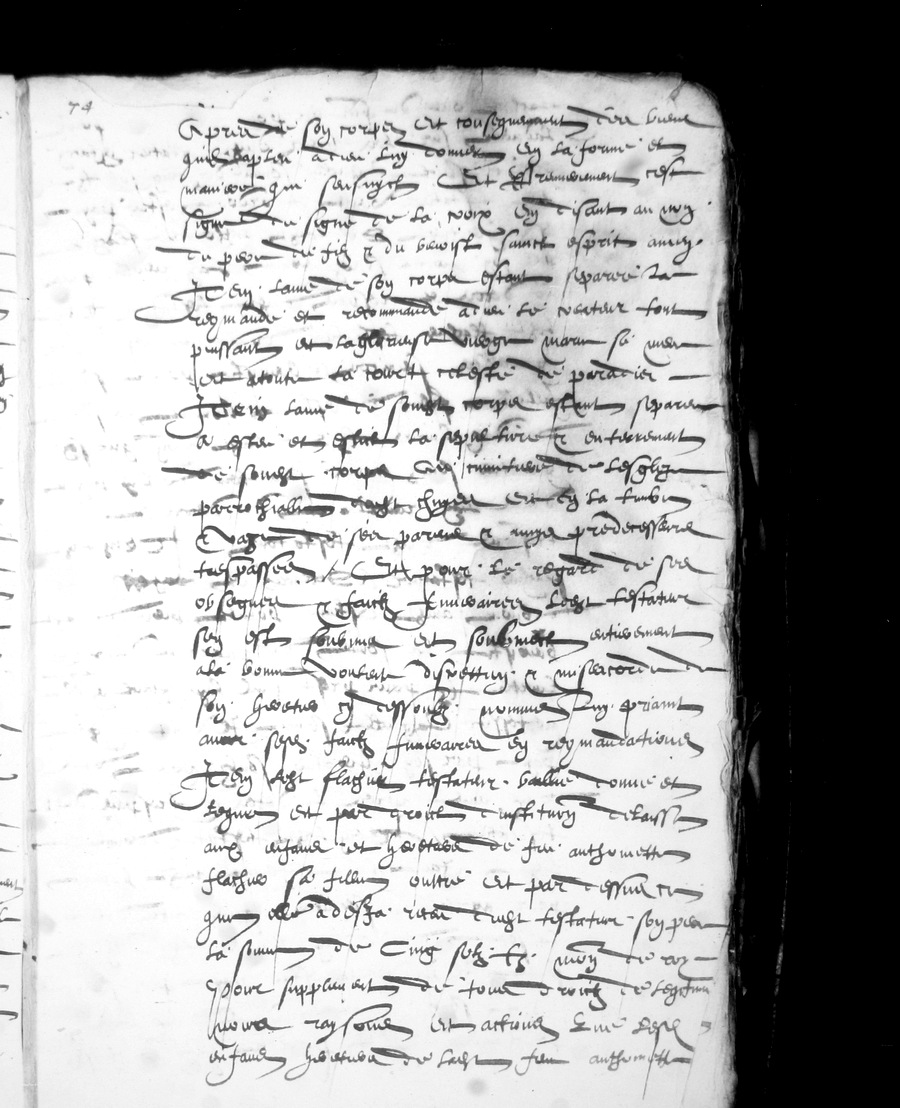 74
Apres de son corps Et consequemment des biens
quil a pleu a dieu luy donner En la forme et
maniere qui sensuyt Et Premierement cest
signe du signe de la croix En disant au nom
du pere du filz & du benoist sainct esprit amen
Item lame de son corps estant separee la
recmande et recommande a dieu le createur tout
puissant et la glorieuse vierge marie sa mere
et a toute la court celeste de paradis
Item lame de soudit corps estant separee
a esleu et eslit la sepulture & enterrement
de soudit corps Au cimitiere de lesglize
parrochialle dudit Et en la tumbe
& vaze de ses parens & amys predecesseurs
trespasses Et pour le regard de ses
obseques & faictz funeraires ledit testateur
sen est soubmis et soubzmect entierement
a la bonne volunte discretion & misericorde de
son heretier cy dessoubz nomme luy priant
avoir sesditz faictz funeraires en recmandations
Item ledit testateur baille donne et
legue et par droict dinstitution delaisse
aux enfans et heretiers de feu anthomette
sa fille oultre Et par dessus ce
que elle a desja receu dudit testateur son pere
la somme de Cinq solz tz monoye de roy
Pour supplement de tous droictz de legitime
noms raysons Et actions que lesditz
enfans heretiers de ladite feu anthomette